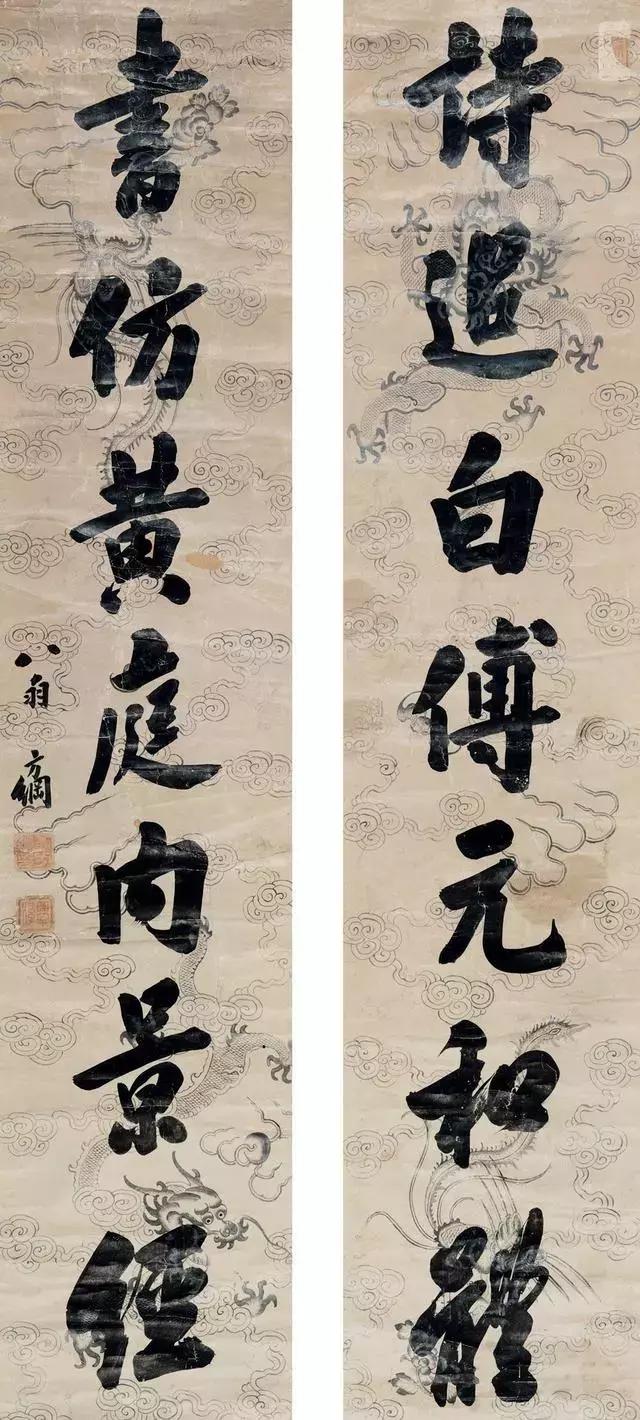 詩追白傅元和體
書仿黃庭內景經
翁方綱